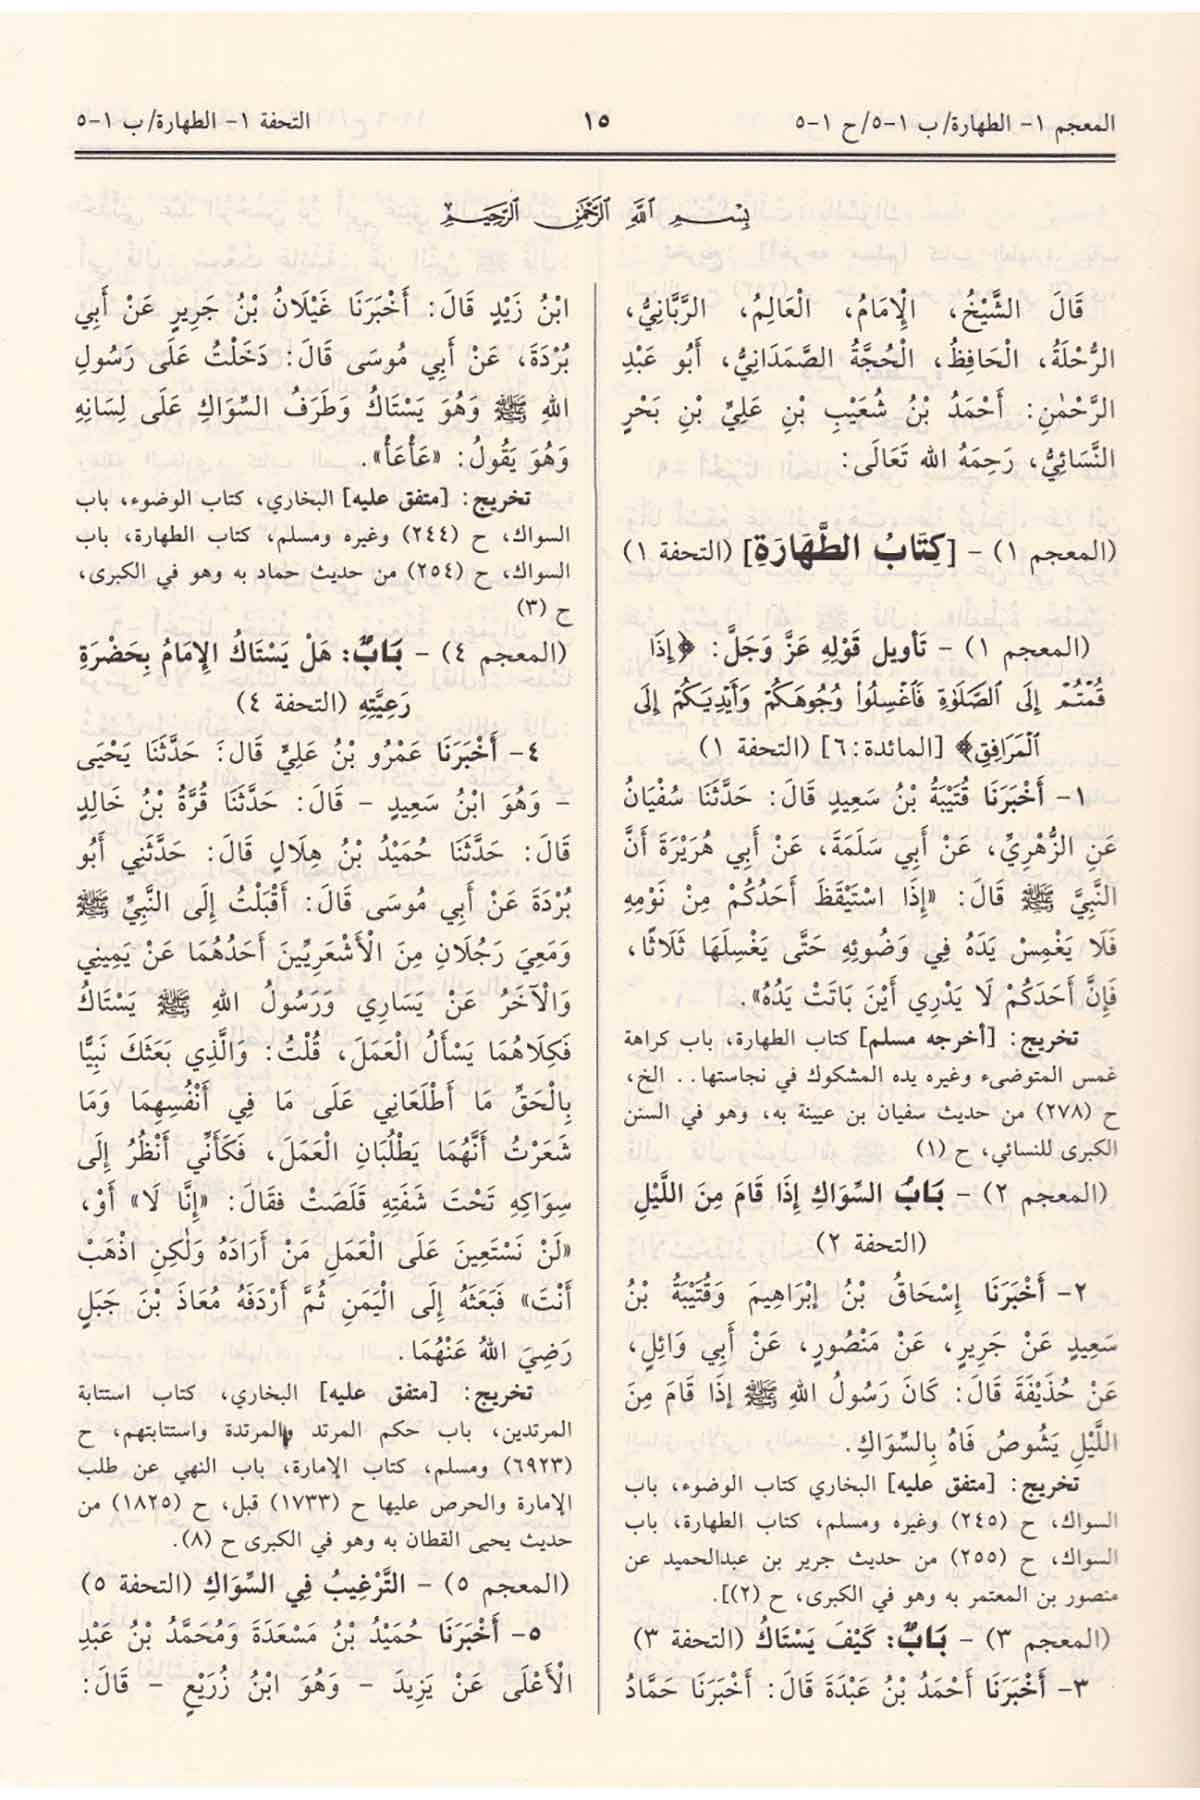 المعجم ١- الطهارة/ ب ١-٥/ ح ١-٥
١٥
التحفة ١- الطهارة/ ب ١-٥
بِسْمِ اللهِ الرَّحْمٰنِ الرَّحِيمِ
قَالَ الشَّيْخُ، الْإِمَامُ، الْعَالِمُ، الرَّبَّانِيُّ،
الرُّحْلَةُ، الْحَافِظُ، الْحُجَّةُ الصَّمَدَانِيُّ، أَبُو عَبْدِ
الرَّحْمٰنِ: أَحْمَدُ بْنُ شُعَيْبِ بْنِ عَلِيِّ بْنِ بَحْرٍ
النَّسَائِيُّ، رَحِمَهُ الله تَعَالَى:
(المعجم ١) - [كِتَابُ الطَّهَارَةِ] (التحفة ١)
(المعجم ١) - تَأويل قَوْلِهِ عَزَّ وَجَلَّ: ﴿إِذَا
قُمْتُمْ إِلَى الصَّلَوٰةِ فَاغْسِلُوا وُجُوهَكُمْ وَأَيْدِيَكُمْ إِلَى
الْمَرَافِقِ﴾ [المائدة:٦] (التحفة ١)
١- أَخْبَرَنَا قُتَيْبَةُ بْنُ سَعِيدٍ قَالَ: حَدَّثَنَا سُفْيَانُ
عَنِ الزُّهْرِيِّ، عَنْ أَبِي سَلَمَةَ، عَنْ أَبِي هُرَيْرَةَ أَنَّ
النَّبِيَّ ﷺ قَالَ: «إِذَا اسْتَيْقَظَ أَحَدُكُمْ مِنْ نَوْمِهِ
فَلَا يَغْمِسْ يَدَهُ فِي وَضُوئِهِ حَتَّى يَغْسِلَهَا ثَلَاثًا،
فَإِنَّ أَحَدَكُمْ لَا يَدْرِي أَيْنَ بَاتَتْ يَدُهُ».
تخريج: [أخرجه مسلم] كتاب الطهارة، باب كراهة
غمس المتوضىء وغيره يده المشكوك في نجاستها.. الخ،
ح (٢٧٨) من حديث سفيان بن عيينة به، وهو في السنن
الكبرى للنسائي، ح (١)
(المعجم ٢) - بَابُ السِّوَاكِ إِذَا قَامَ مِنَ اللَّيْلِ
(التحفة ٢)
٢- أَخْبَرَنَا إِسْحَاقُ بْنُ إِبْرَاهِيمَ وَقُتَيْبَةُ بْنُ
سَعِيدٍ عَنْ جَرِيرٍ، عَنْ مَنْصُورٍ، عَنْ أَبِي وَائِلٍ،
عَنْ حُذَيْفَةَ قَالَ: كَانَ رَسُولُ اللهِ ﷺ إِذَا قَامَ مِنَ
اللَّيْلِ يَشُوصُ فَاهُ بِالسِّوَاكِ.
تخريج: [متفق عليه] البخاري كتاب الوضوء، باب
السواك، ح (٢٤٥) وغيره ومسلم، كتاب الطهارة، باب
السواك، ح (٢٥٥) من حديث جرير بن عبدالحميد عن
منصور بن المعتمر به وهو في الكبرى، ح (٢)].
(المعجم ٣) - بَابٌ: كَيْفَ يَسْتَاكُ (التحفة ٣)
٣- أَخْبَرَنَا أَحْمَدُ بْنُ عَبْدَةَ قَالَ: أَخْبَرَنَا حَمَّادُ
ابْنُ زَيْدٍ قَالَ: أَخْبَرَنَا غَيْلَانُ بْنُ جَرِيرٍ عَنْ أَبِي
بُرْدَةَ، عَنْ أَبِي مُوسَى قَالَ: دَخَلْتُ عَلَى رَسُولِ
اللهِ ﷺ وَهُوَ يَسْتَاكُ وَطَرَفُ السِّوَاكِ عَلَى لِسَانِهِ
وَهُوَ يَقُولُ: «عَأْعَأْ».
تخريج: [متفق عليه] البخاري، كتاب الوضوء، باب
السواك، ح (٢٤٤) وغيره ومسلم، كتاب الطهارة، باب
السواك، ح (٢٥٤) من حديث حماد به وهو في الكبرى،
ح (٣)
(المعجم ٤) - بَابٌ: هَلْ يَسْتَاكُ الإِمَامُ بِحَضْرَةِ
رَعِيَّتِهِ (التحفة ٤)
٤- أَخْبَرَنَا عَمْرُو بْنُ عَلِيٍّ قَالَ: حَدَّثَنَا يَحْيَى
- وَهُوَ ابْنُ سَعِيدٍ - قَالَ: حَدَّثَنَا قُرَّةُ بْنُ خَالِدٍ
قَالَ: حَدَّثَنَا حُمَيْدُ بْنُ هِلَالٍ قَالَ: حَدَّثَنِي أَبُو
بُرْدَةَ عَنْ أَبِي مُوسَى قَالَ: أَقْبَلْتُ إِلَى النَّبِيِّ ﷺ
وَمَعِيَ رَجُلَانِ مِنَ الْأَشْعَرِيِّينَ أَحَدُهُمَا عَنْ يَمِينِي
وَالْآخَرُ عَنْ يَسَارِي وَرَسُولُ اللهِ ﷺ يَسْتَاكُ
فَكِلَاهُمَا يَسْأَلُ الْعَمَلَ، قُلْتُ: وَالَّذِي بَعَثَكَ نَبِيًّا
بِالْحَقِّ مَا أَطْلَعَانِي عَلَى مَا فِي أَنْفُسِهِمَا وَمَا
شَعَرْتُ أَنَّهُمَا يَطْلُبَانِ الْعَمَلَ، فَكَأَنِّي أَنْظُرُ إِلَى
سِوَاكِهِ تَحْتَ شَفَتِهِ قَلَصَتْ فقَالَ: «إِنَّا لَا» أَوْ،
«لَنْ نَسْتَعِينَ عَلَى الْعَمَلِ مَنْ أَرَادَهُ وَلٰكِنِ اذْهَبْ
أَنْتَ» فَبَعَثَهُ إِلَى الْيَمَنِ ثُمَّ أَرْدَفَهُ مُعَاذَ بْنَ جَبَلٍ
رَضِيَ اللهُ عَنْهُمَا.
تخريج: [متفق عليه] البخاري، كتاب استتابة
المرتدين، باب حكم المرتد والمرتدة واستتابتهم، ح
(٦٩٢٣) ومسلم، كتاب الإمارة، باب النهي عن طلب
الإمارة والحرص عليها ح (١٧٣٣) قبل، ح (١٨٢٥) من
حديث يحيى القطان به وهو في الكبرى ح (٨).
(المعجم ٥) - التَّرْغِيبُ فِي السِّوَاكِ (التحفة ٥)
٥- أَخْبَرَنَا حُمَيْدُ بْنُ مَسْعَدَةَ وَمُحَمَّدُ بْنُ عَبْدِ
الْأَعْلَى عَنْ يَزِيدَ - وَهُوَ ابْنُ زُرَيْعٍ - قَالَ: